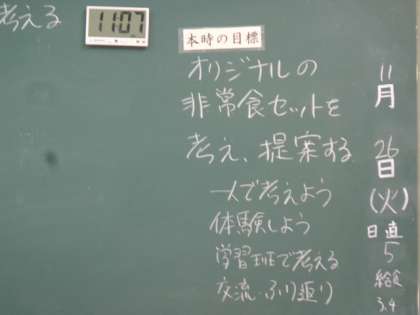 考える
11:07
本時の目標
オリジナルの
非常食セットを
考え、提案する
一人で考えよう
体験しよう
学習班で考える
交流・ふり返り
11
月
26
日
(火)
日直
5
給食
3.4